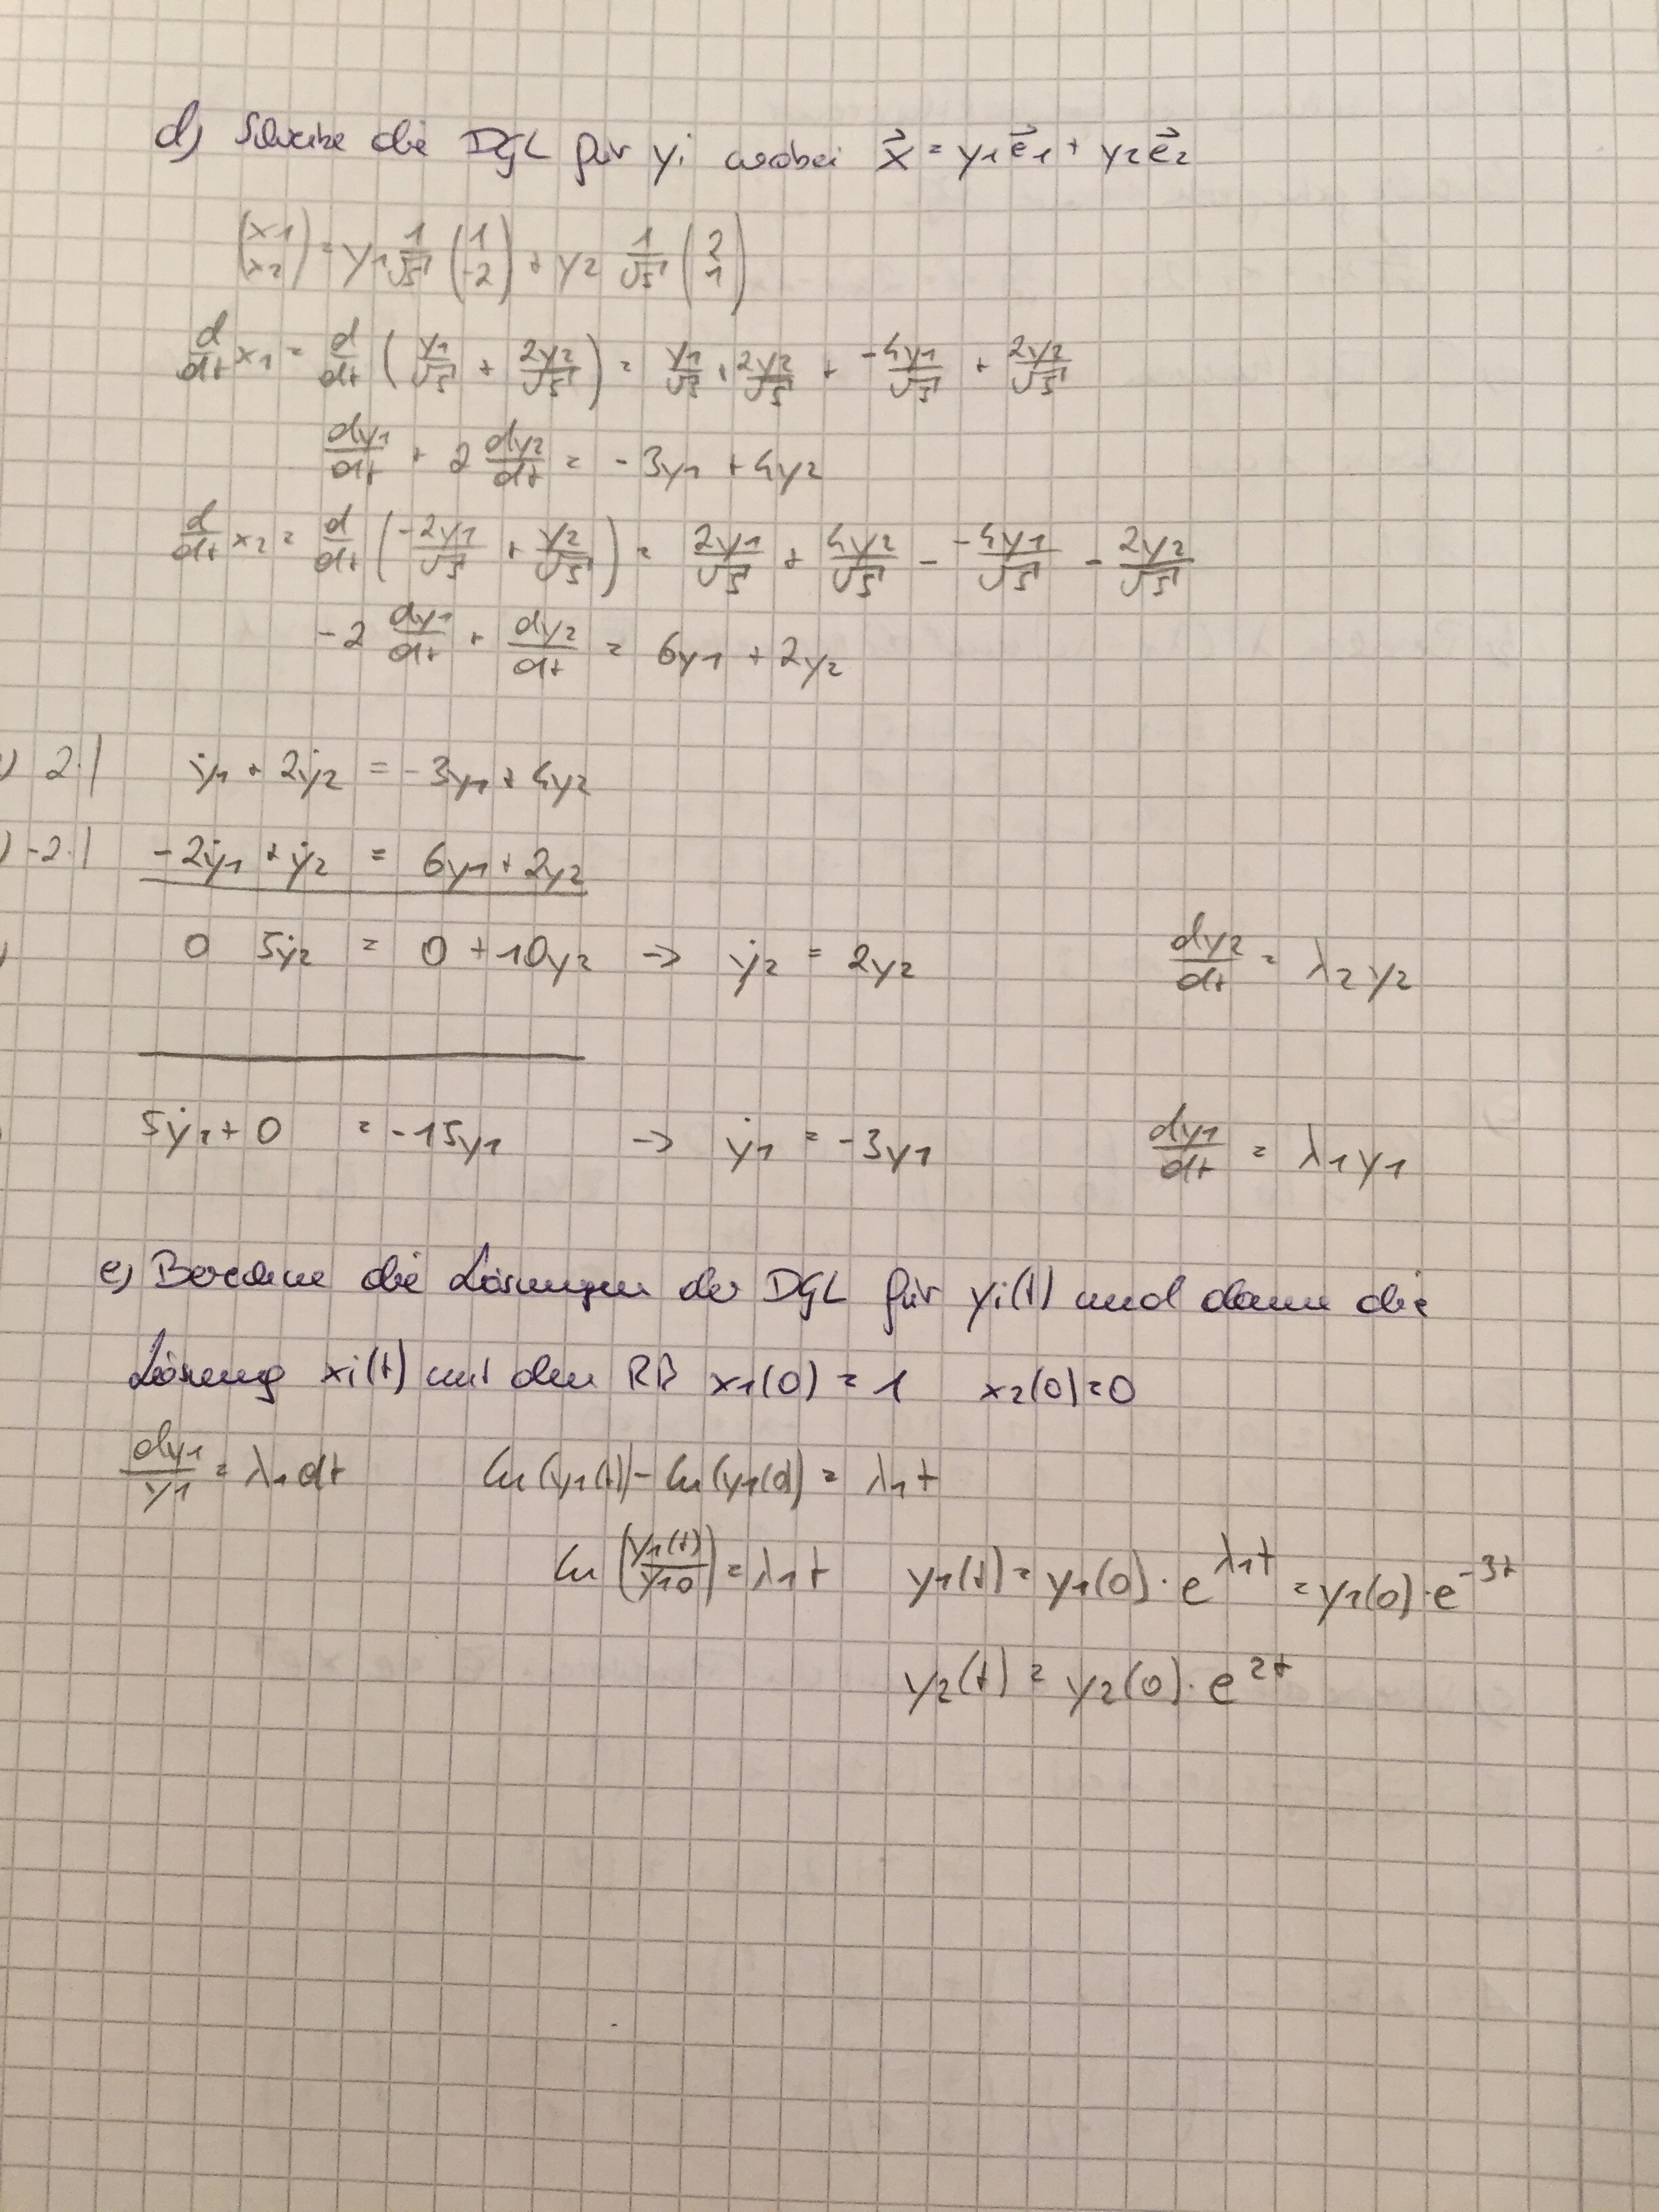 d) Schreibe die DGL für yi wobei x⃗ = y1 e⃗1 + y2 e⃗2
(x1 x2) = y1 1/√5 (1 -2) + y2 1/√5 (2 1)
d/dt x1 = d/dt (y1/√5 + 2y2/√5) = y1/√5 + 2y2/√5 + -4y1/√5 + 2y2/√5
dy1/dt + 2 dy2/dt = -3y1 + 4y2
d/dt x2 = d/dt (-2y1/√5 + y2/√5) = 2y1/√5 + 4y2/√5 - -4y1/√5 - 2y2/√5
-2 dy1/dt + dy2/dt = 6y1 + 2y2
) 2·| ẏ1 + 2ẏ2 = -3y1 + 4y2
) -2·| -2ẏ1 + ẏ2 = 6y1 + 2y2
0 5ẏ2 = 0 + 10y2 → ẏ2 = 2y2 dy2/dt = λ2 y2
5ẏ1 + 0 = -15y1 → ẏ1 = -3y1 dy1/dt = λ1 y1
e) Berechne die Lösungen der DGL für yi(t) und dann die
Lösung xi(t) mit den RB x1(0) = 1 x2(0) = 0
dy1/y1 = λ1 dt ln(y1(t)) - ln(y1(0)) = λ1 t
ln (y1(t)/y10) = λ1 t y1(t) = y1(0) · e^λ1t = y1(0) · e^-3t
y2(t) = y2(0) · e^2t